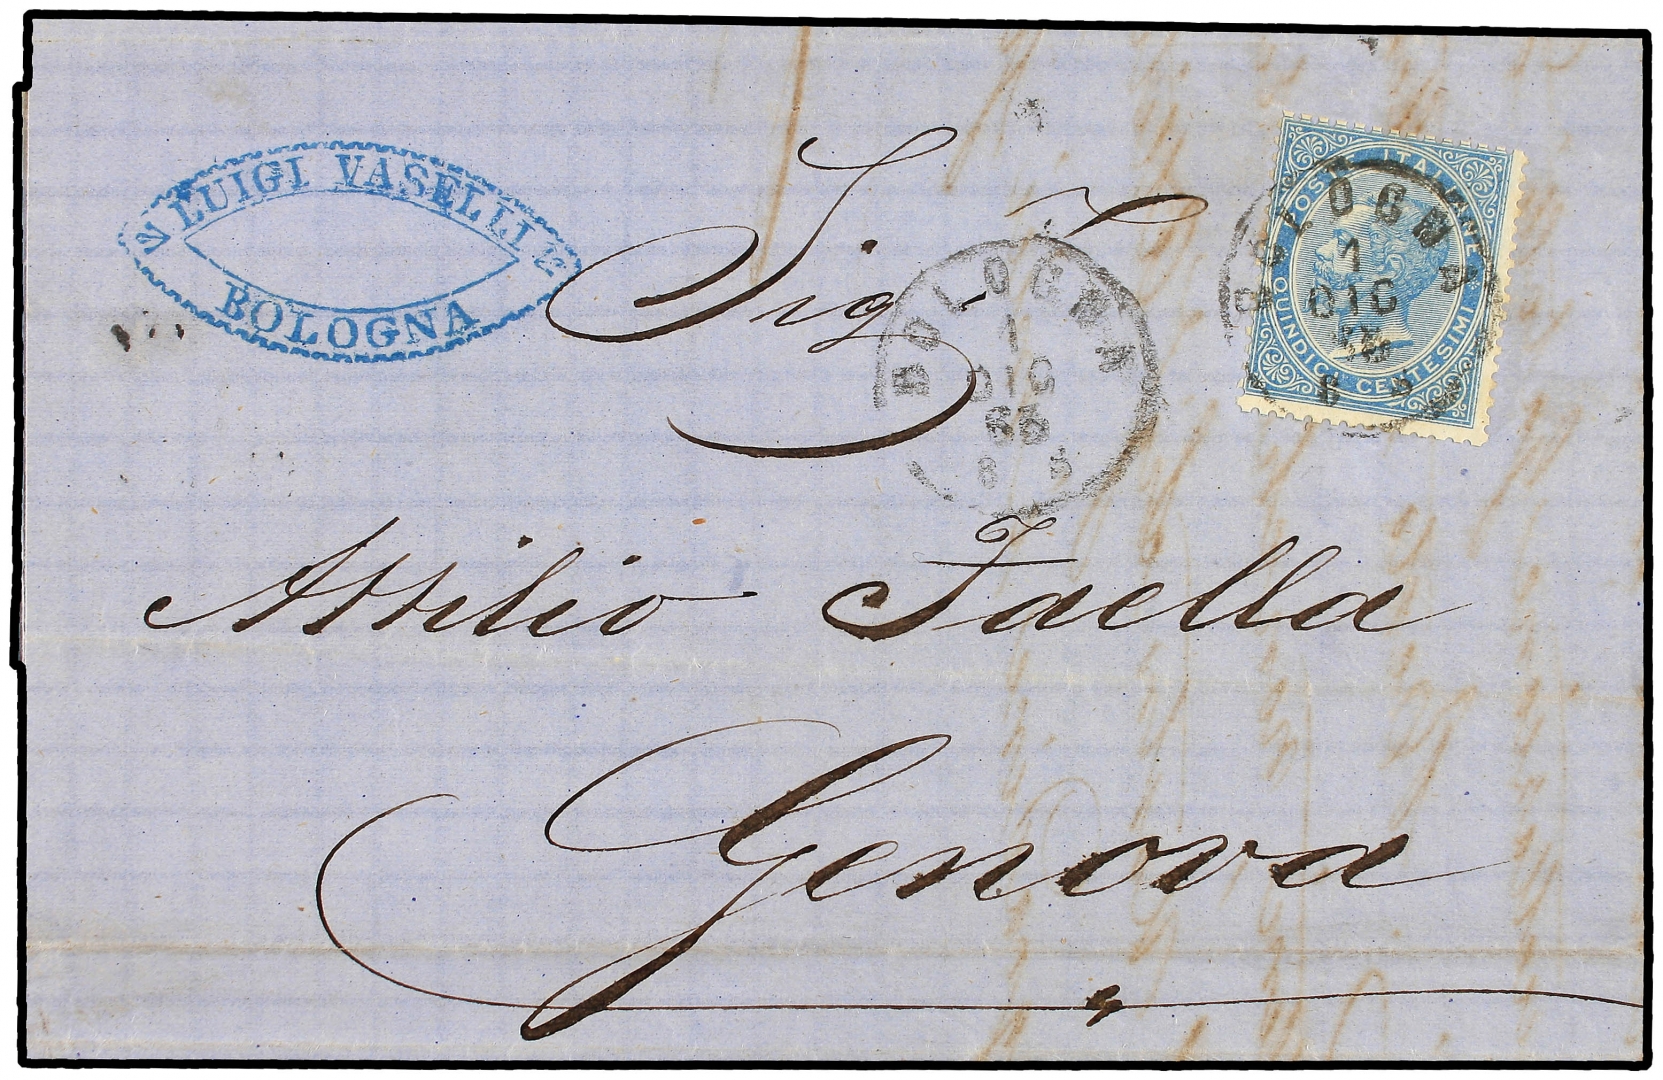 LUIGI VASELLI
BOLOGNA
Sig.r
Attilio Faella
Genova
BOLOGNA
1
DIC
65
8 S
POSTE ITALIANE
QUINDICI CENTESIMI
BOLOGNA
1
DIC
65
8 S